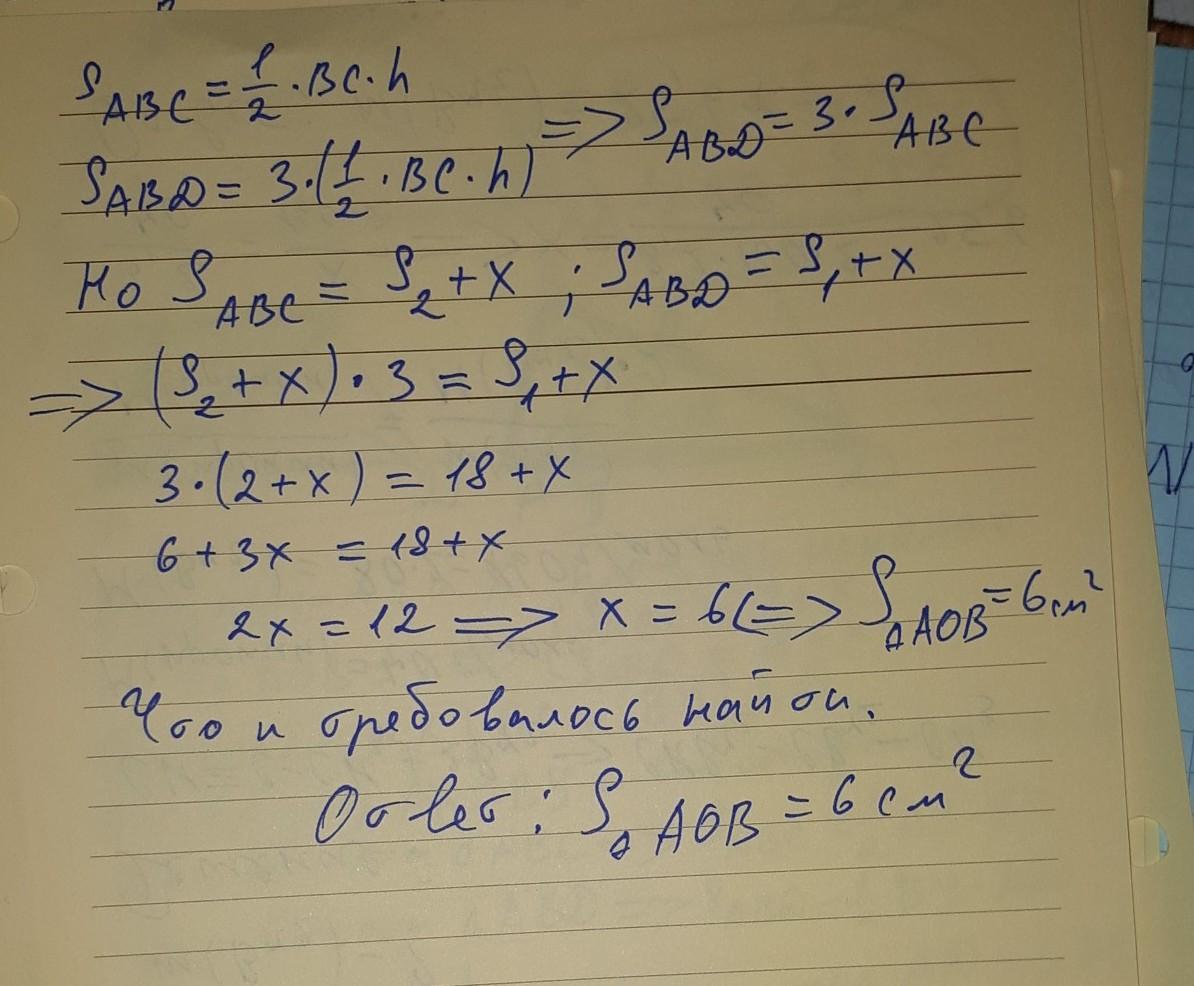 S_ABC = 1/2 · BC · h
S_ABD = 3 · (1/2 · BC · h) => S_ABD = 3 · S_ABC
Но S_ABC = S_2 + x ; S_ABD = S_1 + x
=> (S_2 + x) · 3 = S_1 + x
3 · (2 + x) = 18 + x
6 + 3x = 18 + x
2x = 12 => x = 6 (=> S_ΔAOB = 6 см²
Что и требовалось найти.
Ответ: S_ΔAOB = 6 см²